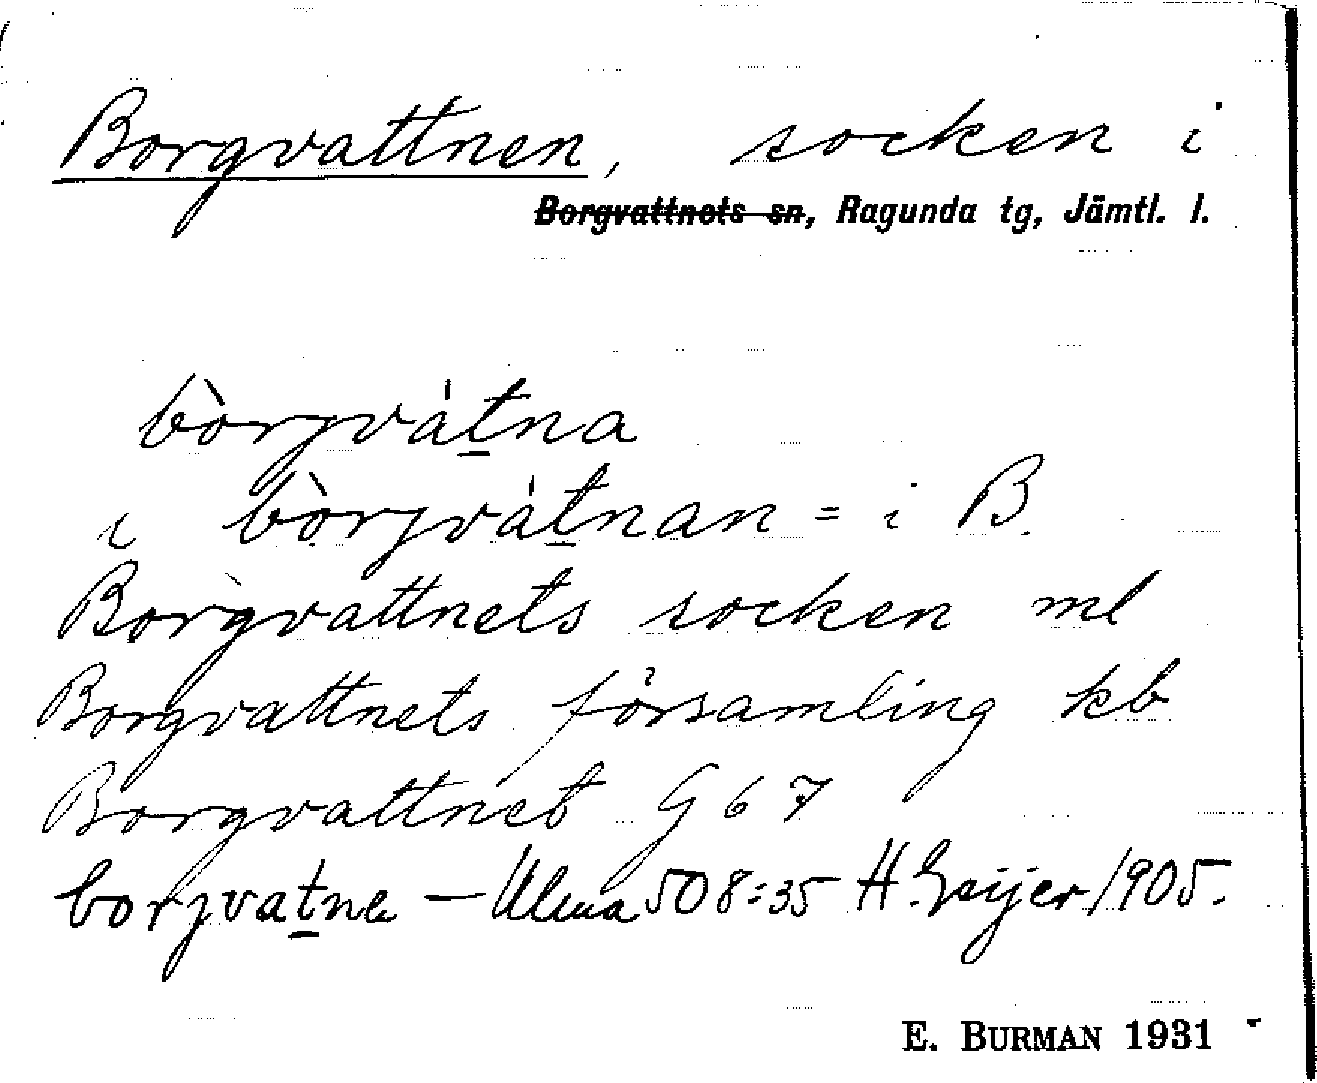 Borgvattnen, socken i
Borgvattnets sn, Ragunda tg, Jämtl. l.
bòrjvátna
i bòrjvátnan = i B.
Borgvattnets socken ml
Borgvattnets församling kb
Borgvattnet G 67
borjvatne — Ulma 508:35 H. Geijer 1905.
E. BURMAN 1931